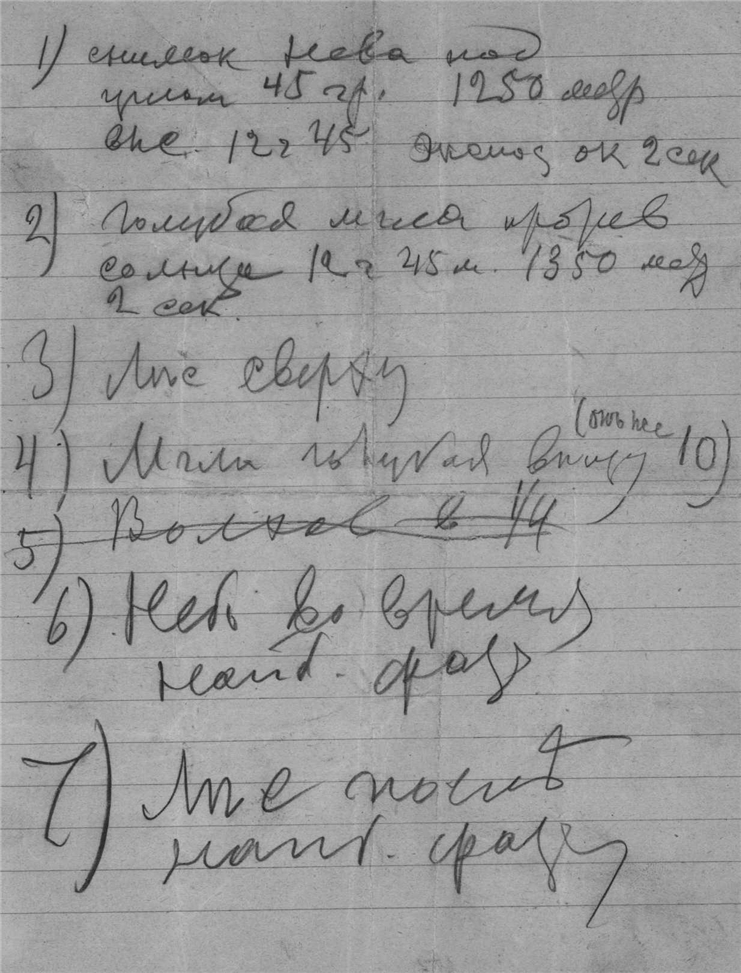 1) снимок Нева под
углом 45 гр. 1250 метр
выс. 12 ч 45 экспоз ок 2 сек
2) голубая мгла прорыв
солнца 12 ч 45 м. 1350 метр
2 сек.
3) сверху
4) Мгла голубая внизу 10)
5) Волхов в 1/4
6) Небо во время
наиб. фазы
7) после
наиб. фазы